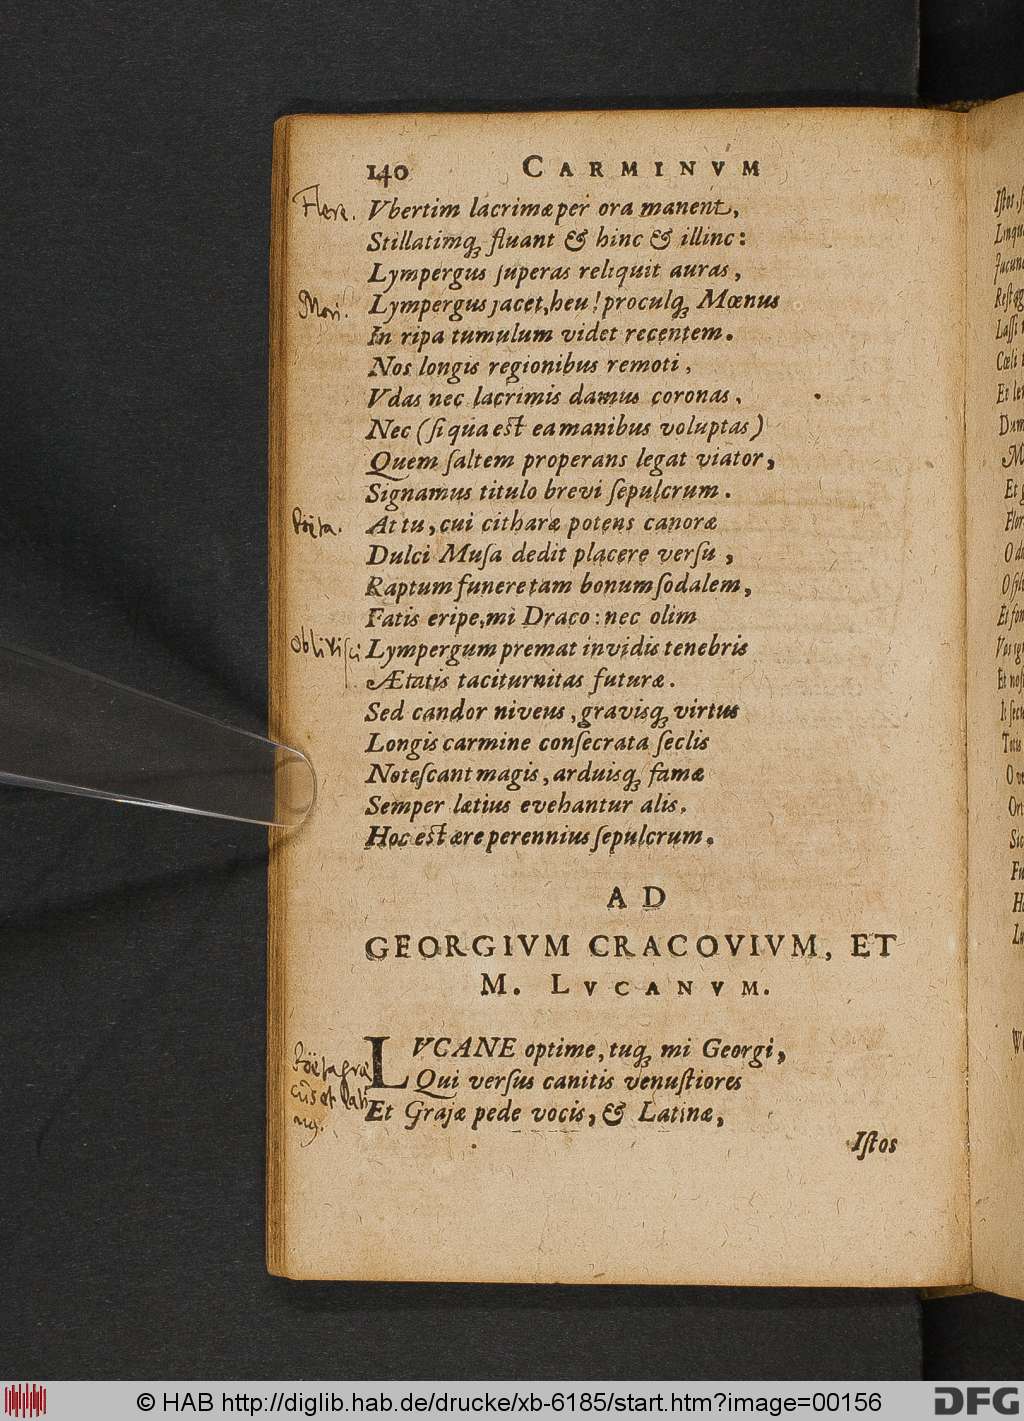 140 CARMINVM
Flere.
Vbertim lacrimæ per ora manent,
Stillatimq́ꝫ fluant & hinc & illinc:
Lympergus ſuperas reliquit auras,
Mori.
Lympergus jacet, heu! proculq́ꝫ Mœnus
In ripa tumulum videt recentem.
Nos longis regionibus remoti,
Vdas nec lacrimis damus coronas,
Nec (ſi qua eſt ea manibus voluptas)
Quem ſaltem properans legat viator,
Signamus titulo brevi ſepulcrum.
Poëta.
At tu, cui citharæ potens canoræ
Dulci Muſa dedit placere verſu,
Raptum funere tam bonum ſodalem,
Fatis eripe, mi Draco: nec olim
Obliviſci
Lympergum premat invidis tenebris
Ætatis taciturnitas futuræ.
Sed candor niveus, gravisq́ꝫ virtus
Longis carmine conſecrata ſeclis
Noteſcant magis, arduisq́ꝫ famæ
Semper lætius evehantur alis.
Hoc eſt ære perennius ſepulcrum.
AD
GEORGIVM CRACOVIVM, ET
M. LVCANVM.
LVCANE optime, tuq́ꝫ mi Georgi,
Poëta græ
Qui verſus canitis venuſtiores
cus et Lati
Et Grajæ pede vocis, & Latinæ,
nus.
Iſtos
© HAB http://diglib.hab.de/drucke/xb-6185/start.htm?image=00156
DFG